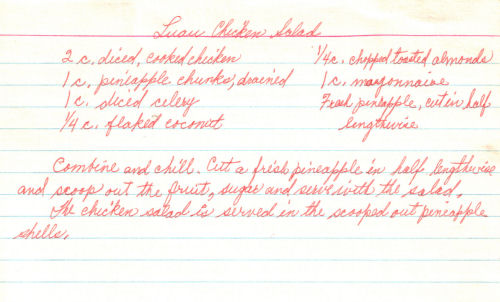 Luau Chicken Salad
2 c. diced, cooked chicken
1 c. pineapple chunks, drained
1 c. sliced celery
1/4 c. flaked coconut
1/4 c. chopped toasted almonds
1 c. mayonnaise
Fresh pineapple, cut in half
lengthwise
Combine and chill. Cut a fresh pineapple in half lengthwise
and scoop out the fruit, sugar and serve with the salad.
The chicken salad is served in the scooped out pineapple
shells.